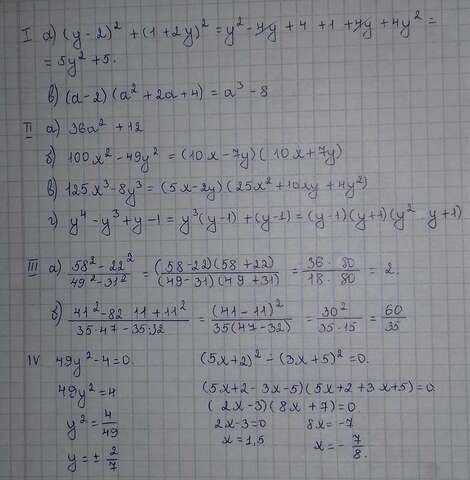 I а) (y-2)² + (1+2y)² = y² - 4y + 4 + 1 + 4y + 4y² =
= 5y² + 5.
в) (a-2)(a² + 2a + 4) = a³ - 8
II а) 36a² + 12
б) 100x² - 49y² = (10x - 7y)(10x + 7y)
в) 125x³ - 8y³ = (5x - 2y)(25x² + 10xy + 4y²)
г) y⁴ - y³ + y - 1 = y³(y-1) + (y-1) = (y-1)(y+1)(y² y+1)
III а) (58² - 22²)/(49² - 31²) = ((58-22)(58+22))/((49-31)(49+31)) = (36 · 80)/(18 · 80) = 2.
б) (41² - 82 11 + 11²)/(35·47 - 35·32) = (41-11)²/(35(47-32)) = 30²/(35·15) = 60/35
IV 49y² - 4 = 0. (5x+2)² - (3x+5)² = 0.
49y² = 4 (5x+2-3x-5)(5x+2+3x+5) = 0.
(2x-3)(8x+7) = 0
y² = 4/49 2x-3=0 8x = -7
y = ± 2/7 x = 1,5 x = - 7/8.